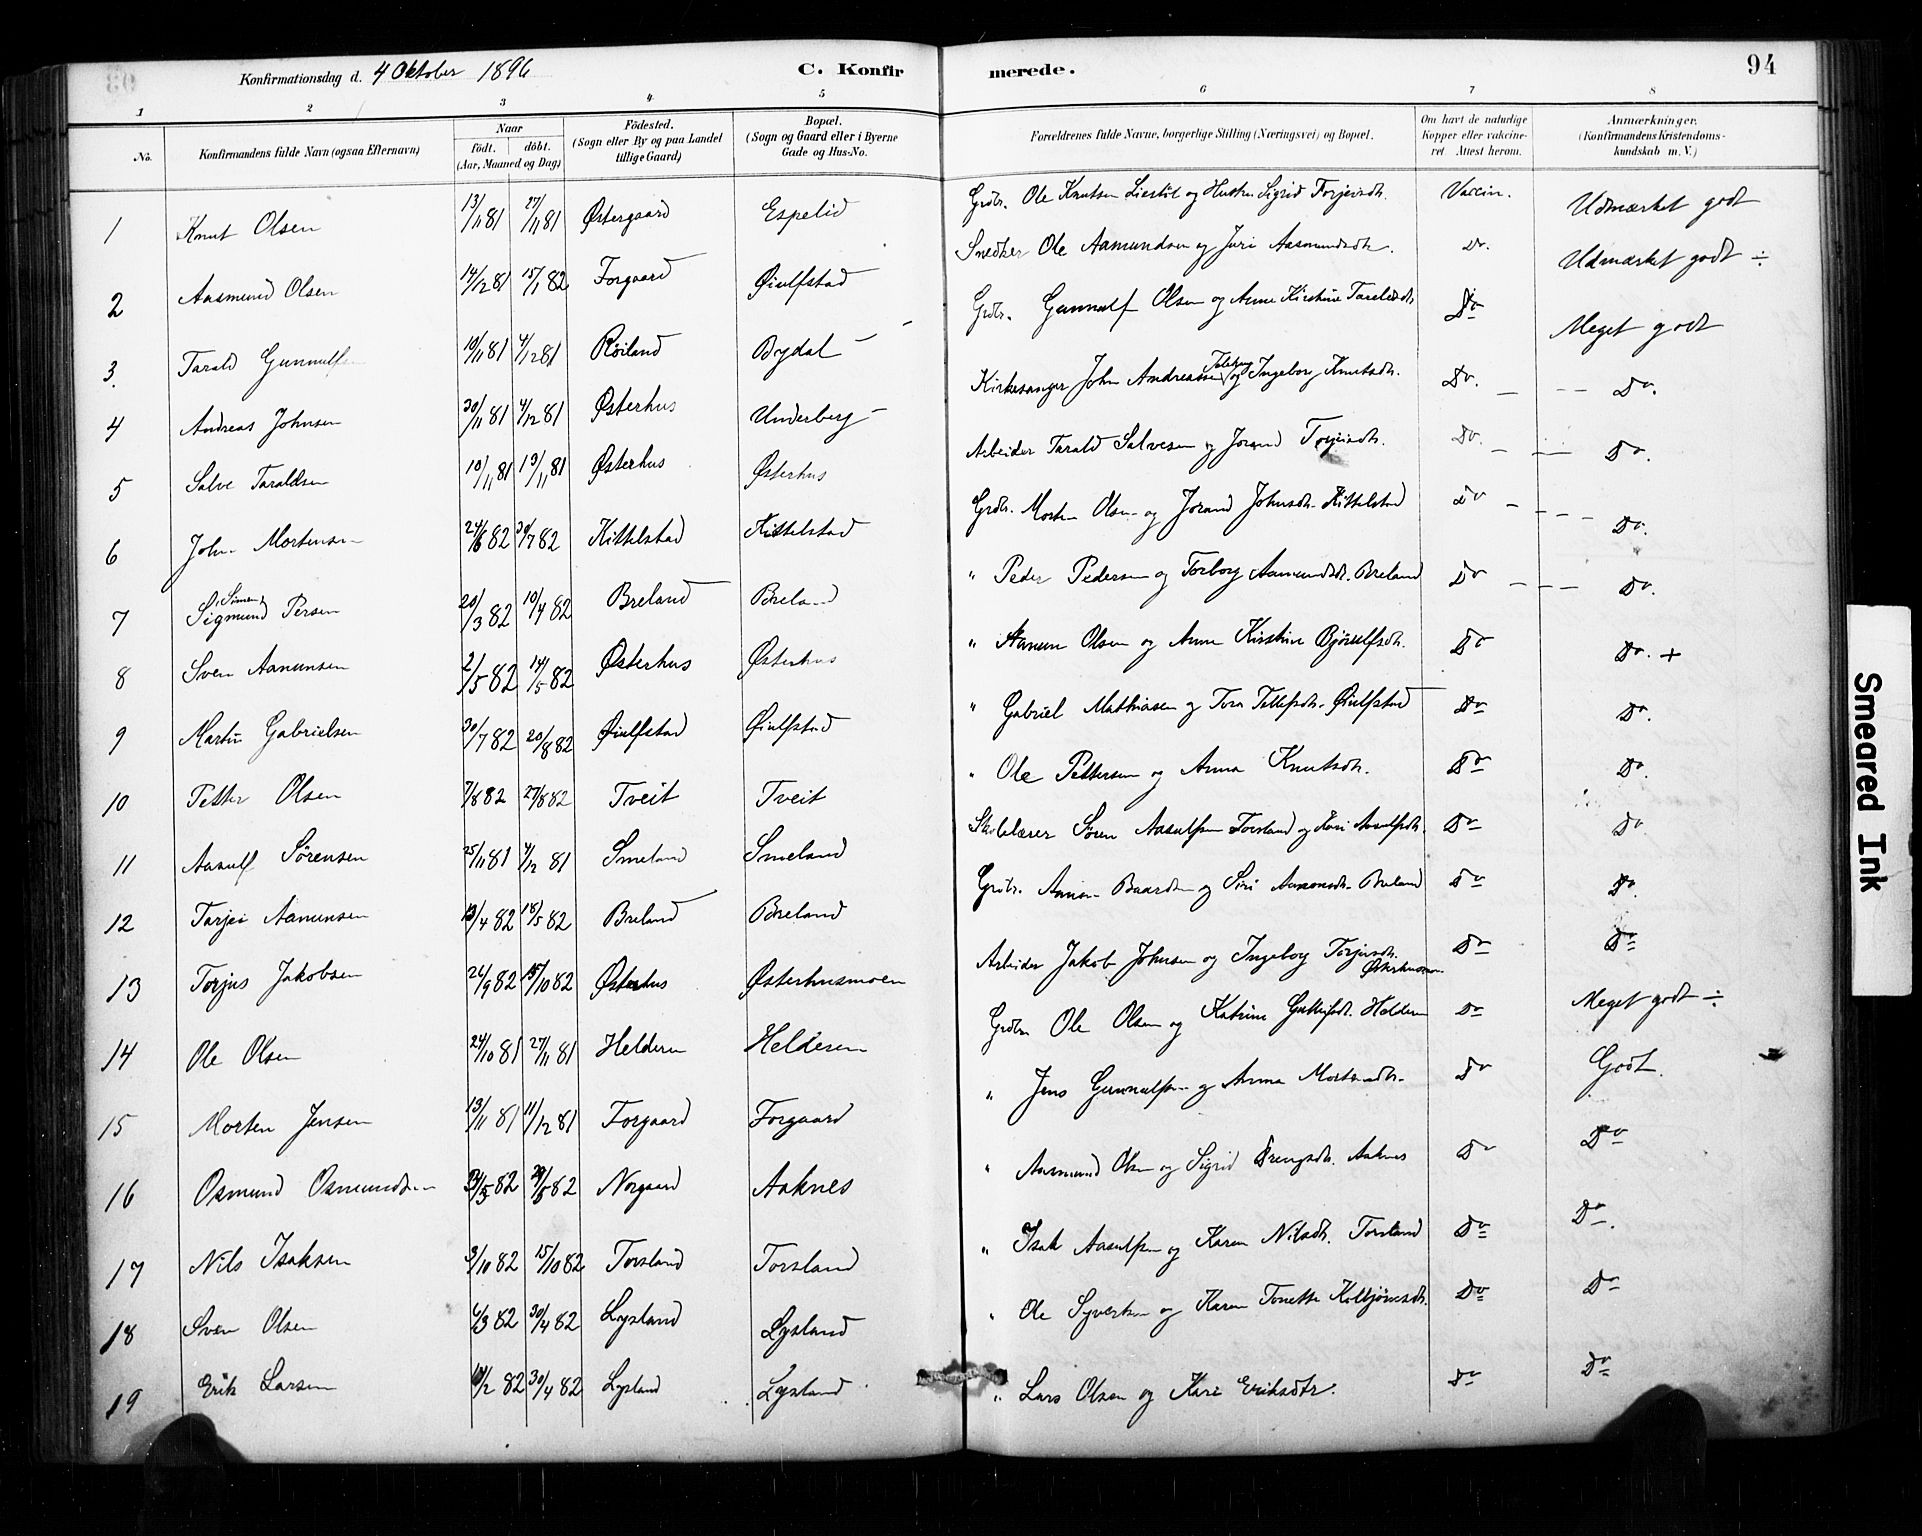 Konfirmationsdag d. 4 Oktober 1896
C. Konfirmerede.
94
1 2 3 4 5 6 7 8
No.
Konfirmandens fulde Navn (ogsaa Efternavn)
Naar
født. døbt.
(Aar, Maaned og Dag)
Fødested.
(Sogn eller By og paa Landet
tillige Gaard)
Bopæl.
(Sogn og Gaard eller i Byerne
Gade og Hus-No.
Forældrenes fulde Navne, borgerlige Stilling (Næringsvei) og Bopæl.
Om havt de naturlige
Kopper eller vakcine-
ret Attest herom.
Anmerkninger.
(Konfirmandens Kristendoms-
kundskab m. V.)
1 Knut Olsen 13/11 81 27/11 81 Østergaard Espelid Grdbr. Ole Knutsen Liestøl og Hustru Sigrid Torjeisdtr. Vaccin. Udmærket godt
2 Aasmund Olsen 14/12 81 15/1 82 Forgaard Øiulfstad Snedker Ole Aamundsen og Juri Aasmundsdtr. Do. Udmærket godt ÷
3. Tarald Gunnulfsen 10/11 81 4/12 81 Røiland Bydal Grdbr. Gunnulf Olsen og Anne Kirstine Taraldsdtr Do Meget godt
4 Andreas Johnsen 20/11 81 4/12 81 Østerhus Underberg Kirkesanger John Andreassen og Ingeborg Knutsdtr. Do. Do.
5 Salve Taraldsen 10/11 81 19/11 81 Østerhus Østerhus Arbeider Tarald Salvesen og Jorand Torjeisdtr. Do. Do.
6 John Mortensen 24/6 82 30/7 82 Kittelstad Kittelstad Grdbr. Morten Olsen og Jorand Johnsdtr. Kittelstad Do Do.
7 Sigmund Simen Persen 20/3 82 10/4 82 Breland Breland " Peder Pedersen og Torborg Aamundsdtr. Breland Do Do.
8 Sven Aanunsen 2/5 82 14/5 82 Østerhus Østerhus " Aanun Olsen og Anne Kirstine Bjørulfsdtr. Do Do. +
9 Martin Gabrielsen 30/7 82 20/8 82 Øiulfstad Øiulfstad " Gabriel Mathiasen og Tora Tellefsdtr. Øiulfstad Do Do.
10 Petter Olsen 7/8 82 27/8 82 Tveit Tveit " Ole Pettersen og Anna Knutsdtr. Do Do.
11 Aasulf Sørensen 25/11 81 4/12 81 Smeland Smeland Skolelærer Søren Aasulfsen Torsland og Kari Aasulfsdtr. Do Do
12 Tarjei Aanunsen 13/4 82 18/5 82 Breland Breland Grdbr. Aanon Baardsen og Siri Aanonsdtr. Breland Do Do.
13 Torjus Jakobsen 26/9 82 15/10 82 Østerhus Østerhusmoen Arbeider Jakob Johnsen og Ingeborg Torjusdtr. Østerhusmoen Do Do
14 Ole Olsen 24/10 81 27/11 81 Helderen Helderen Grdbr Ole Olsen og Katrine Guttulfsdtr. Helderen Do Meget godt ÷
15 Morten Jensen 13/11 81 11/12 81 Forgaard Forgaard " Jens Gunnulfsen og Anna Mortensdtr. Do Godt.
16 Osmund Osmundsen 82 82 Norgaard Aaknes " Aasmund Olsen og Sigrid Drengsdtr. Aaknes Do Do
17 Nils Isaksen 3/10 82 15/10 82 Torsland Torsland " Isak Aasulfsen og Karen Nilsdtr. Torsland Do Do.
18 Sven Olsen 6/3 82 30/4 82 Lysland Lysland " Ole Syvertsen og Karen Tonette Kolbjørnsdtr. Do Do
19 Erik Larsen 10/2 82 30/4 82 Lysland Lysland " Lars Olsen og Kari Eriksdtr. Do Do
Smeared Ink